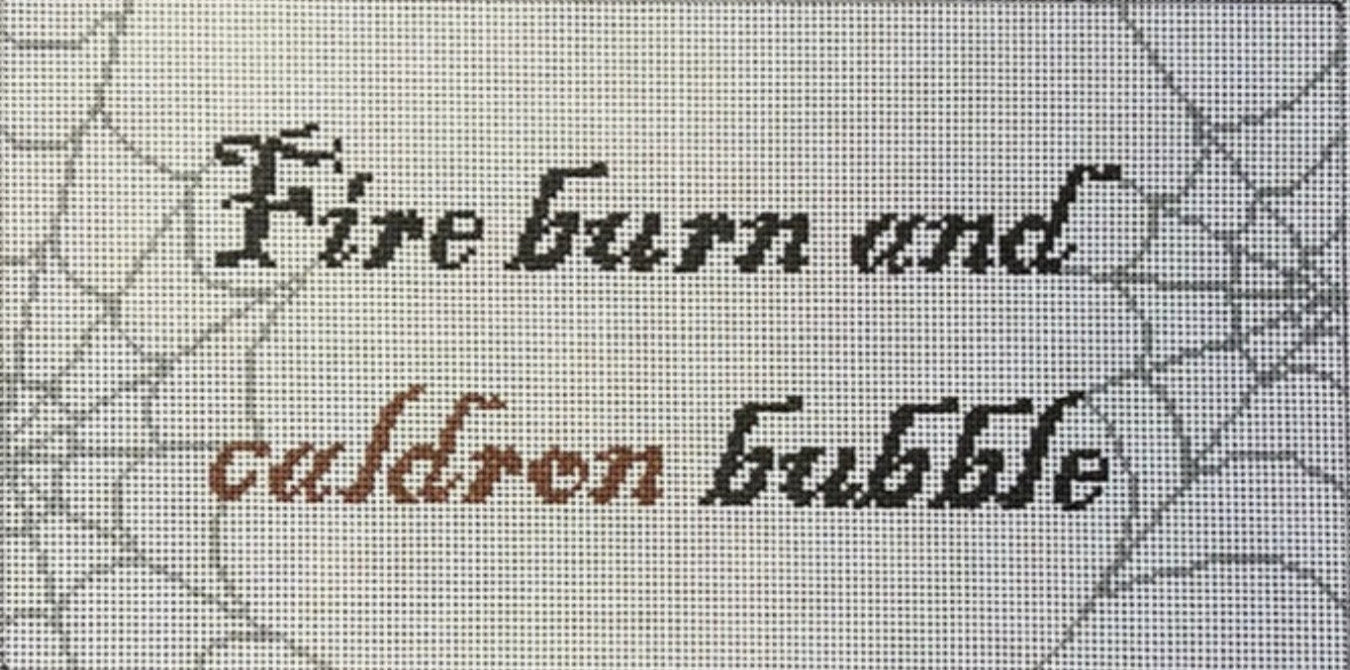 Fire burn and
caldron bubble